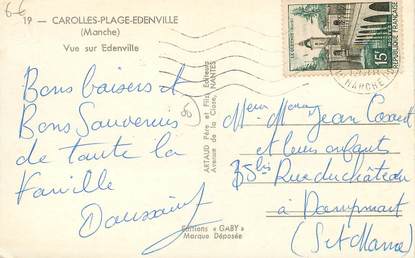 6€
19 — CAROLLES-PLAGE-EDENVILLE
(Manche)
Vue sur Edenville
Bons baisers et
Bons Souvenirs
de toute la
Famille
ARTAUD Père et Fils, Éditeurs
Avenue de la Close, NANTES
Editions « GABY »
Marque Déposée
15F
REPUBLIQUE FRANÇAISE
MANCHE
Jean
et leurs enfants
35bis Rue du château
à Dampmart
(S et Marne)